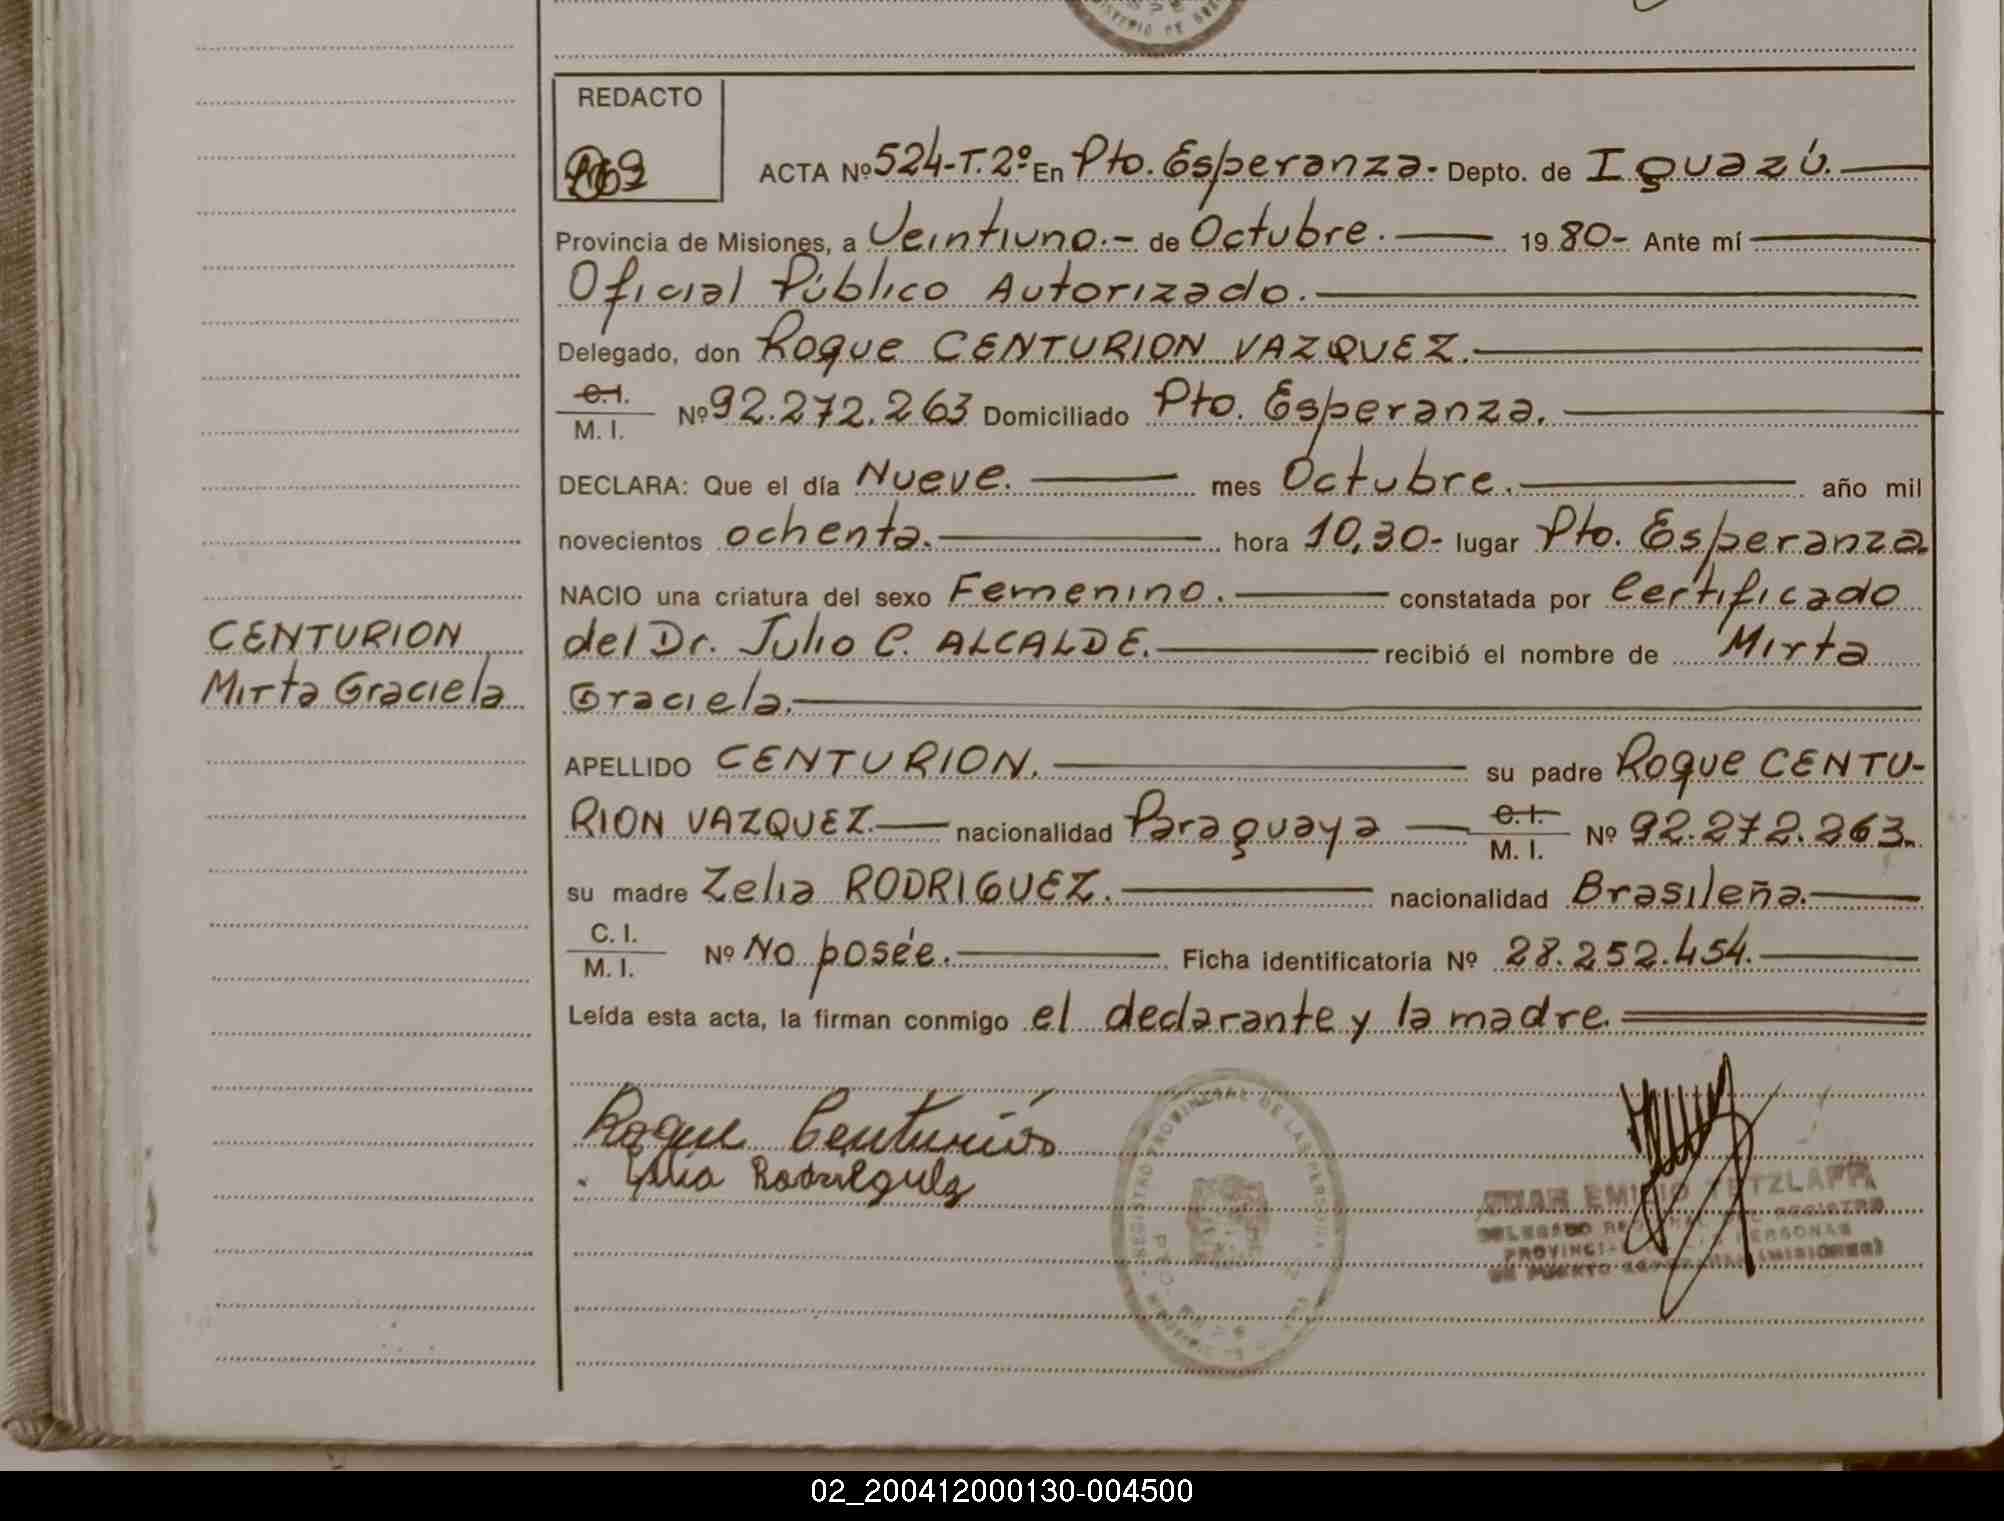 REDACTO
ACTA Nº 524-T.2º En Pto. Esperanza.- Depto. de Iguazú.
Provincia de Misiones, a Veintiuno.- de Octubre. 19 80- Ante mí
Oficial Público Autorizado.
Delegado, don Roque CENTURION VAZQUEZ.
C.I.
M. I. Nº 92.272.263 Domiciliado Pto. Esperanza.
DECLARA: Que el día Nueve. mes Octubre. año mil
novecientos ochenta. hora 10,30- lugar Pto. Esperanza
NACIO una criatura del sexo Femenino. constatada por Certificado
CENTURION
Mirta Graciela
del Dr. Julio C. ALCALDE. recibió el nombre de Mirta
Graciela.
APELLIDO CENTURION. su padre Roque CENTU-
RION VAZQUEZ. nacionalidad Paraguaya C.I. M. I. Nº 92.272.263.
su madre Zelia RODRIGUEZ. nacionalidad Brasileña.
C. I.
M. I. Nº No posée. Ficha identificatoria Nº 28.252.454.
Leída esta acta, la firman conmigo el declarante y la madre.
Roque Centurión
Zelia Rodriguez
REGISTRO PROVINCIAL DE LAS PERSONAS
JUAN EMILIO TETZLAFF
DELEGADO REGIONAL DEL REGISTRO
PROVINCIAL PERSONAS
DE PUERTO ESPERANZA (MISIONES)
02_200412000130-004500